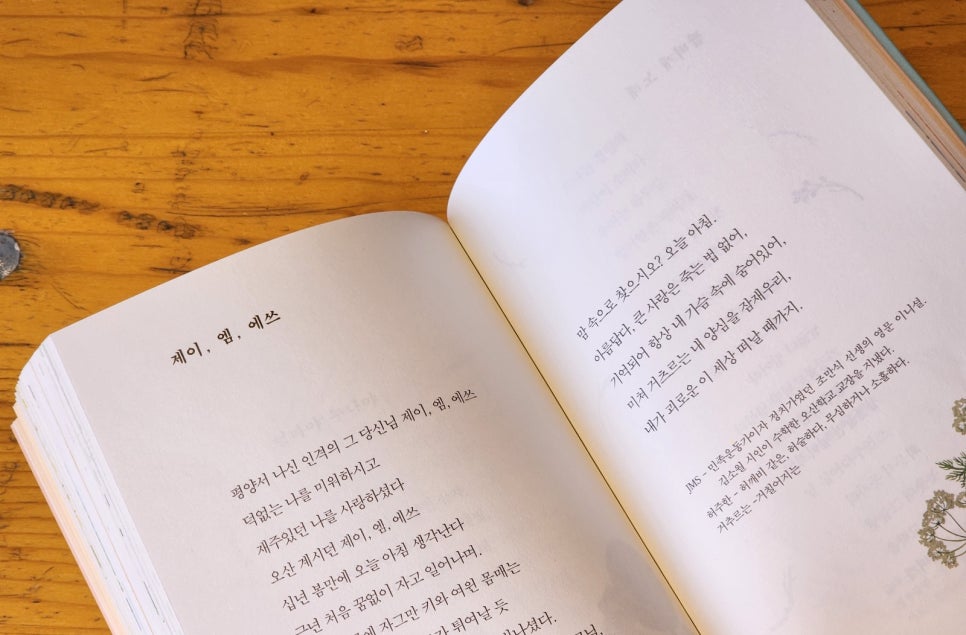 제이, 엠, 에쓰
평양서 나신 인격의 그 당신님 제이, 엠, 에쓰
덕없는 나를 미워하시고
재주있던 나를 사랑하셨다
오산 계시던 제이, 엠, 에쓰
십년 봄만에 오늘 아침 생각난다
그년 처음 꿈없이 자고 일어나며.
에 자그만 키와 여윈 몸매는
튀여날 듯
나셨다.
맘 속으로 찾으시오? 오늘 아침.
아름답다, 큰 사랑은 죽는 법 없어,
기억되어 항상 내 가슴 속에 숨어있어,
미쳐 거츠르는 내 양심을 잠재우리,
내가 괴로운 이 세상 떠날 때까지.
JMS - 민족운동가이자 정치가였던 조만식 선생의 영문 이니셜.
김소월 시인이 수학한 오산학교 교장을 지냈다.
허주한 - 허깨비 같은, 허술하다. 무심하거나 소홀하다.
거츠르는 - 거칠어지는